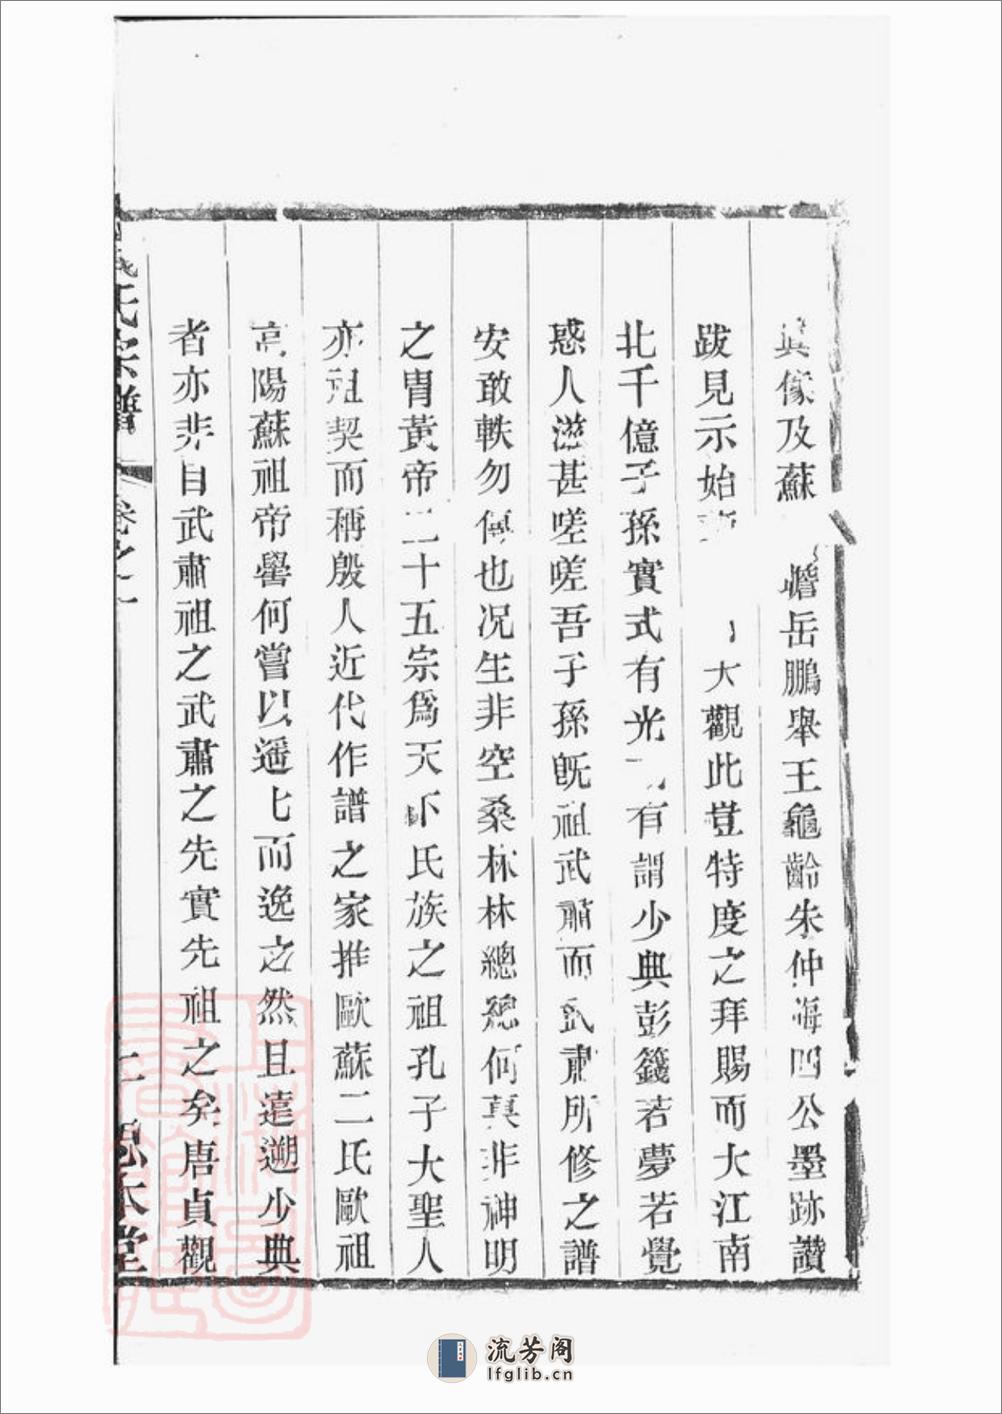 真像及蘇瞻岳鵬舉王龜齡朱仲晦四公墨跡讚
跋見示始大觀此豈特度之拜賜而大江南
北千億子孫實式有光有謂少典彭籛若夢若覺
惑人滋甚嗟嗟吾子孫旣祖武肅而武肅所修之譜
安敢軼勿傳也况生非空桑林林總總何莫非神明
之胄黃帝二十五宗爲天下氏族之祖孔子大聖人
亦祖契而稱殷人近代作譜之家推歐蘇二氏歐祖
高陽蘇祖帝嚳何嘗以遥遥而逸之然且遠遡少典
者亦非自武肅祖之武肅之先實先祖之矣唐貞觀
氏宗譜
卷之一
思本堂
流芳阁
lfglib.cn